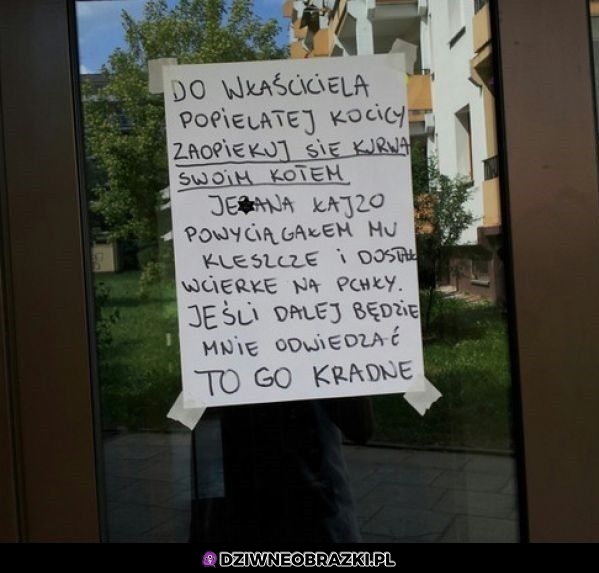 DO WŁAŚCICIELA
POPIELATEJ KOCICY
ZAOPIEKUJ SIĘ KURWA
SWOIM KOTEM
JE ANA ŁAJZO
POWYCIĄGAŁEM MU
KLESZCZE i DOSTAŁ
WCIERKE NA PCHŁY.
JEŚLI DALEJ BĘDZIE
MNIE ODWIEDZAĆ
TO GO KRADNE
DZIWNEOBRAZKI.PL